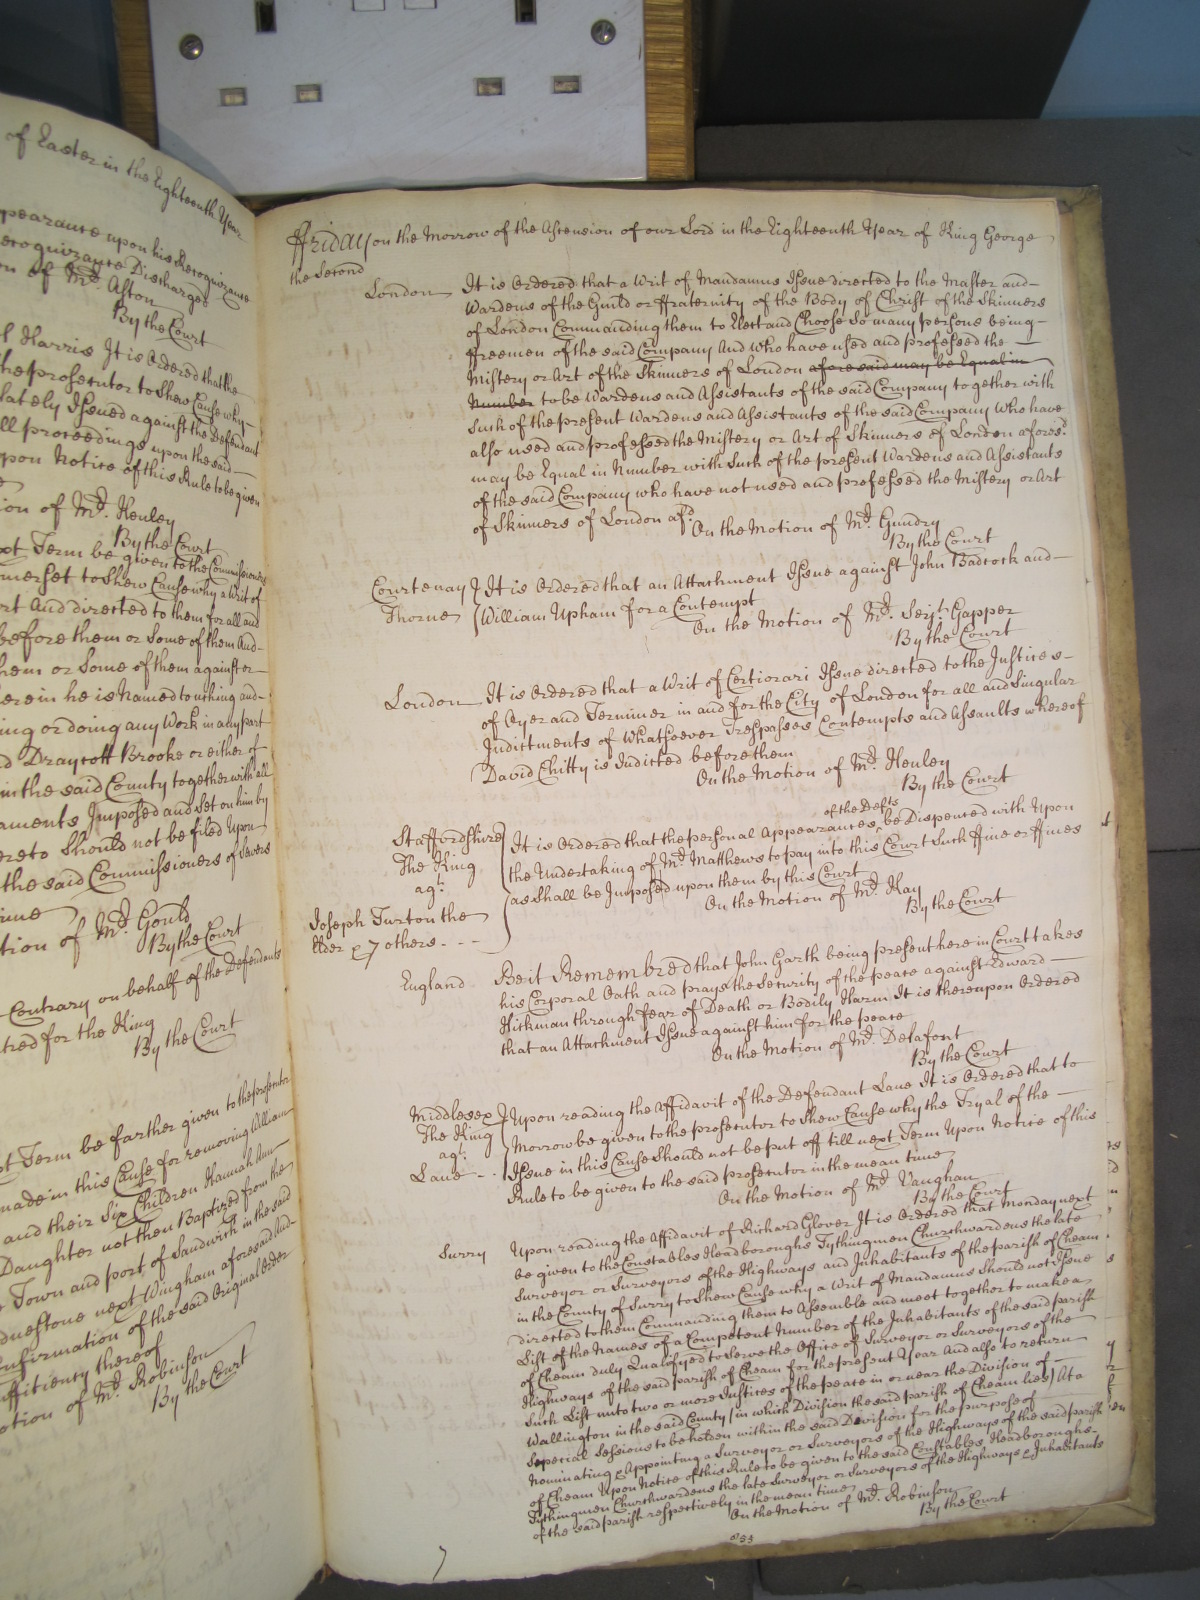 of Easter in the Eighteenth Year
ppearance upon his Recognizance
Recognizance Discharged
on of Mr. Aston
By the Court
l Harris It is Ordered that the
the prosecutor to Shew Cause why
lately Issued against the Defendant
ll proceedings upon the said
upon Notice of this Rule to be given
ion of Mr. Henley
By the Court
ext Term be given to the Commissioners
merset to Shew Cause why a Writ of
rt And directed to them for all and
before them or Some of them And
hem or Some of them against or
erein he is Named touching and
ing or doing any Work in any part
d Draycott Brooke or either of
in the said County together with all
aments Imposed and Set on him by
ereto Should not be filed Upon
the said Commissioners of Sewers
time
tion of Mr. Gould
By the Court
Contrary on behalf of the Defendants
tred for the King
By the Court
xt Term be farther given to the prosecutor
made in this Cause for removing William
and their Six Children Hannah Ann
Daughter not then Baptized from the
Town and port of Sandwich in the said
dnestone next Wingham aforesaid And
onfirmation of the said Original Order
ufficiency thereof
otion of Mr. Robinson
By the Court
Ffriday on the Morrow of the Ascension of our Lord in the Eighteenth Year of King George
the Second
London It is Ordered that a Writ of Mandamus Issue directed to the Master and
Wardens of the Guild or ffraternity of the Body of Christ of the Skinners
of London Commanding them to Elect and Choose So many persons being
ffreemen of the said Company And who have used and professed the
Mistery or Art of the Skinners of London afore said may be Equal in
Number to be Wardens and Assistants of the said Company together with
Such of the present Wardens and Assistants of the said Company Who have
also used and professed the Mistery or Art of Skinners of London afores.d
may be Equal in Number with Such of the present Wardens and Assistants
of the said Company who have not used and professed the Mistery or Art
of Skinners of London afs.d On the Motion of Mr. Gundry
By the Court
Courtenay } It is Ordered that an Attachment Issue against John Badcock and
Thorne { William Upham for a Contempt
On the Motion of Mr. Serj.t Gapper
By the Court
London It is Ordered that a Writ of Certiorari Issue directed to the Justices
of Oyer and Terminer in and for the City of London for all and Singular
Indictments of Whatsoever Trespasses Contempts and Assaults whereof
David Chitty is Indicted before them
On the Motion of Mr. Henley
By the Court
of the Defts
Staffordshire It is Ordered that the personal Appearances be Dispensed with Upon
The King the Undertaking of Mr. Matthews to pay into this Court Such ffine or ffines
ag.t as Shall be Imposed upon them by this Court
On the Motion of Mr. Hay
Joseph Turton the By the Court
Elder & 7 others
England Be it Remembred that John Garth being present here in Court takes
his Corporal Oath and prays the Security of the peace against Edward
Hitkman through fear of Death or Bodily Harm It is thereupon Ordered
that an Attachment Issue against him for the peace
On the Motion of Mr. Delafont
By the Court
Middlesex } Upon reading the Affidavit of the Defendant Lane It is Ordered that to
The King Morrow be given to the prosecutor to Shew Cause why the Tryal of the
ag.t
Lane Issue in this Cause Should not be put off till next Term Upon Notice of this
Rule to be given to the said prosecutor in the mean time
On the Motion of Mr. Vaughan
By the Court
Surry Upon reading the Affidavit of Richard Glover It is Ordered that Monday next
be given to the Constables Headboroughs Tythingmen Churchwardens the late
Surveyor or Surveyors of the Highways and Inhabitants of the parish of Cheam
in the County of Surry to Shew Cause why a Writ of Mandamus Should not Issue
directed to them Commanding them to Assemble and meet together to make a
List of the Names of a Competent Number of the Inhabitants of the said parish
of Cheam duly Qualifyed to Serve the Office of Surveyor or Surveyors of the
Highways of the said parish of Cheam for the present Year And also to return
Such List unto two or more Justices of the peace in or near the Division of
Wallington in the said County (in which Division the said parish of Cheam lies) At a
Special Sessions to be holden within the said Division for the purpose of
Nominating & Appointing a Surveyor or Surveyors of the Highways of the said parish
of Cheam Upon Notice of this Rule to be given to the said Constables Headboroughs
Tythingmen Churchwardens the late Surveyor or Surveyors of the Highways & Inhabitants
of the said parish respectively in the mean time
On the Motion of Mr. Robinson
By the Court